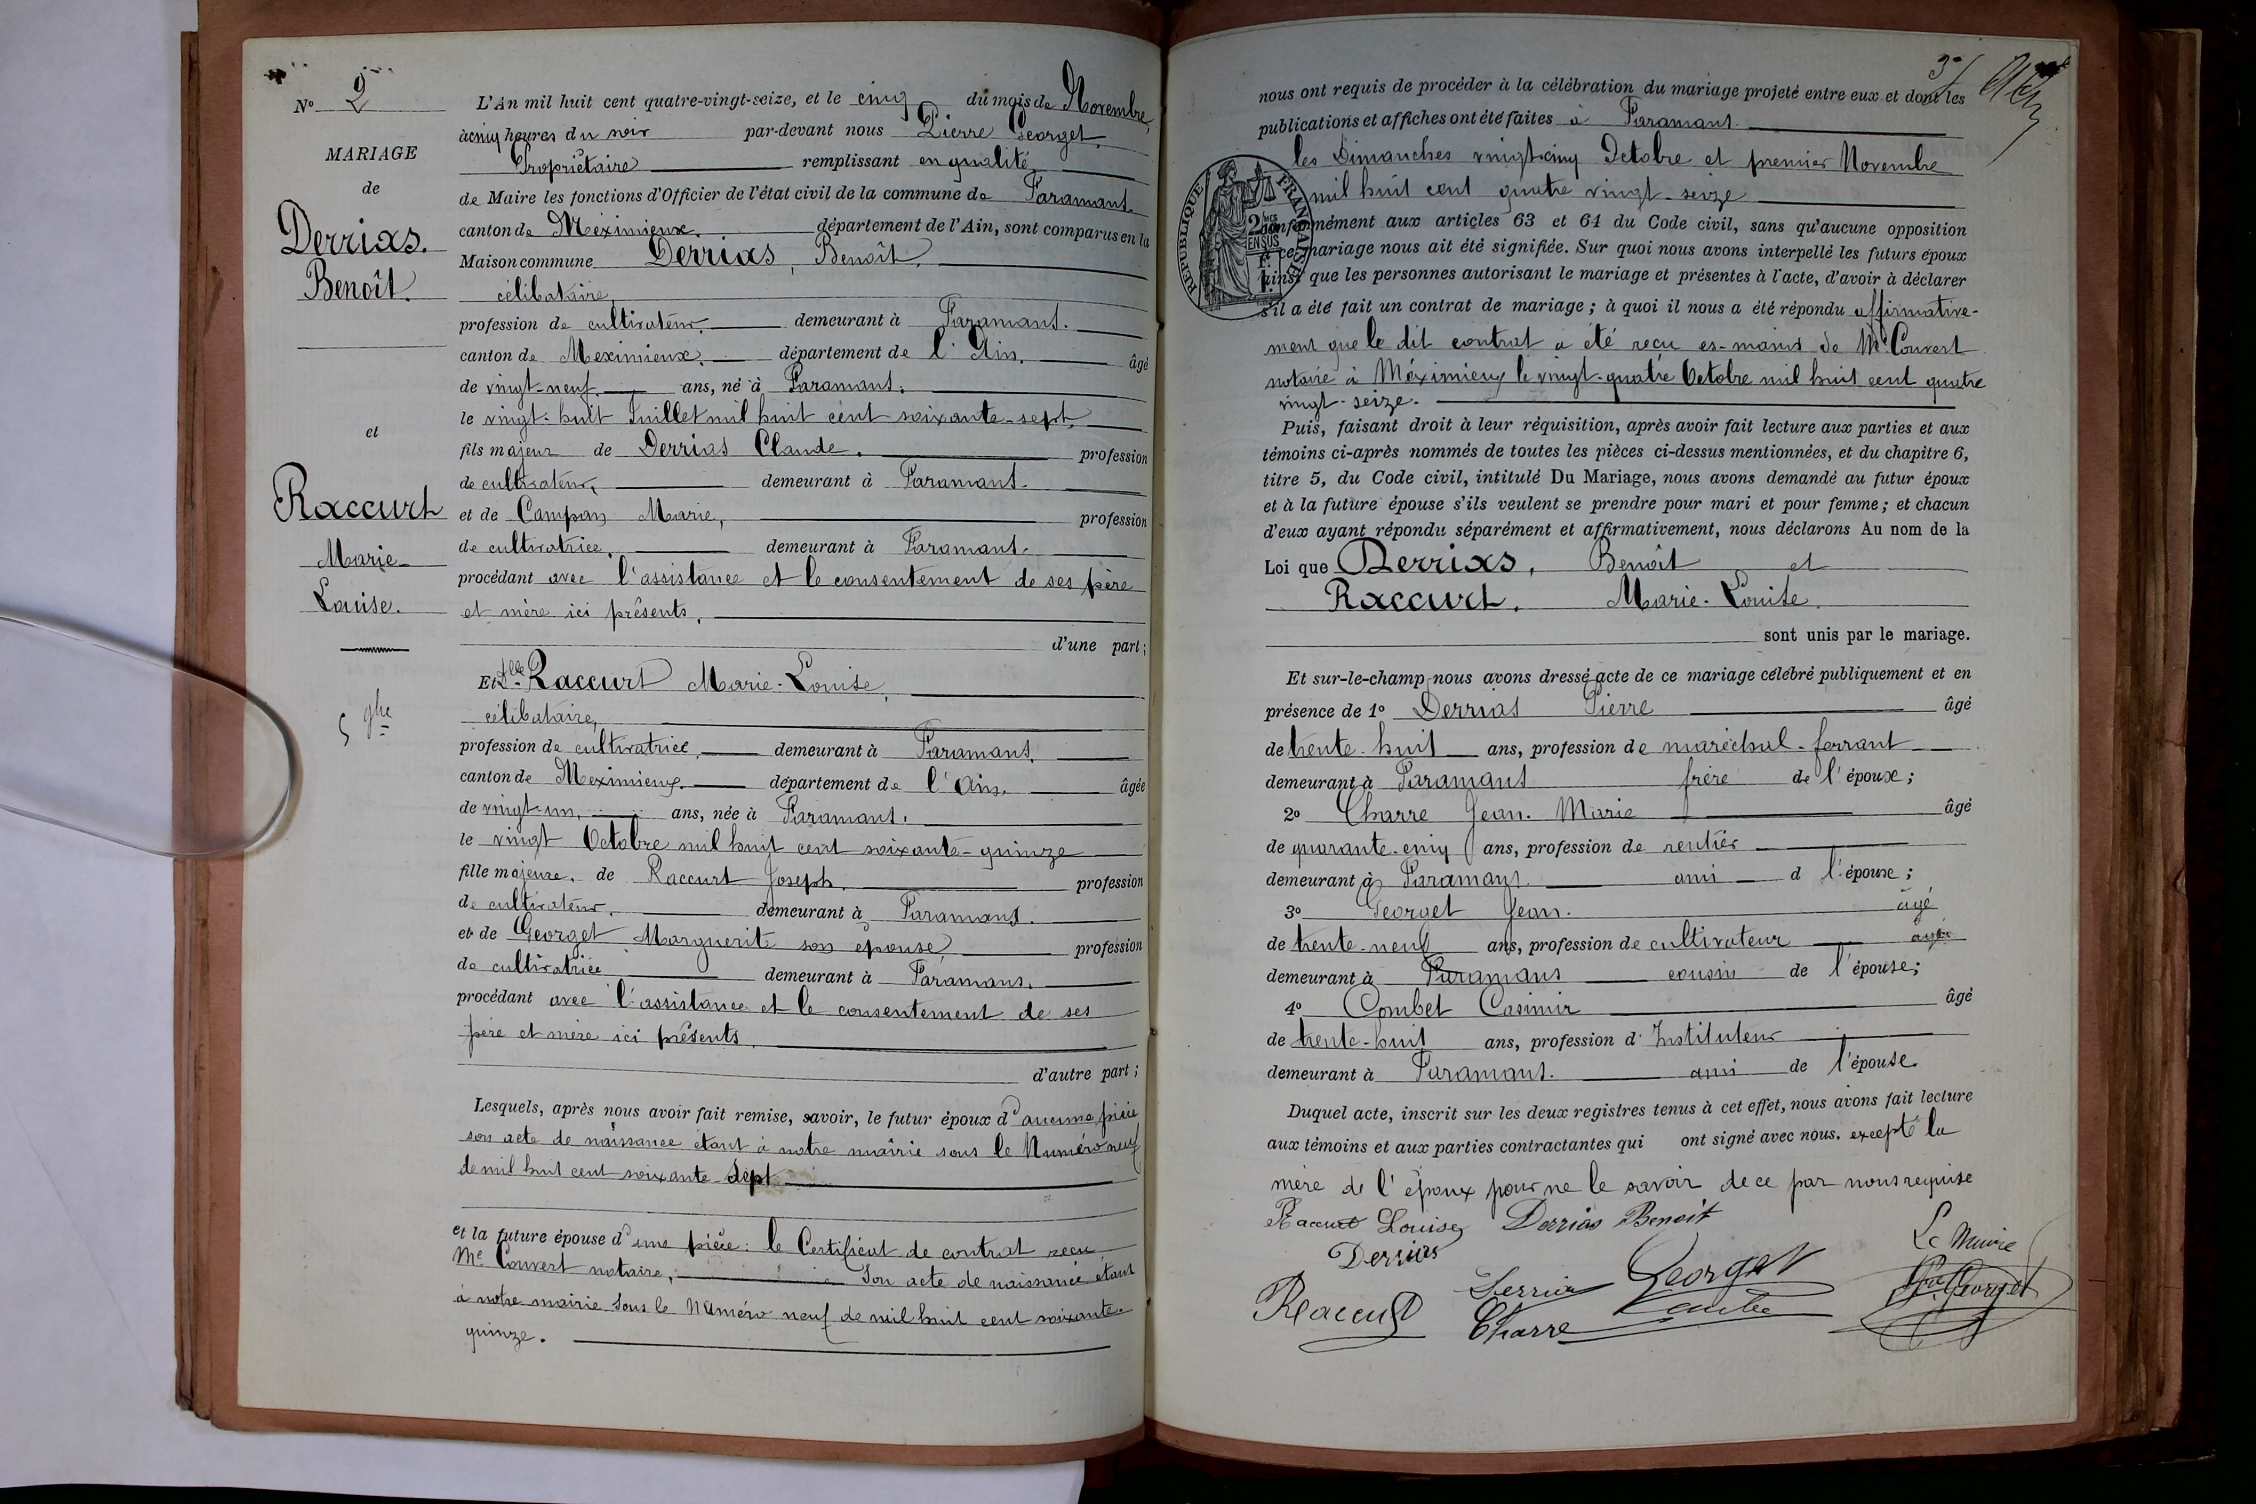 N° 2
MARIAGE
de
Derrias.
Benoît.
et
Raccurt
Marie
Louise.
L'An mil huit cent quatre-vingt-seize, et le cinq du mois de Novembre,
à cinq heures du soir par-devant nous Pierre Georget,
Propriétaire remplissant en qualité
de Maire les fonctions d'Officier de l'état civil de la commune de Faramans
canton de Méximieux. département de l'Ain, sont comparus en la
Maison commune Derrias, Benoît,
célibataire,
profession de cultivateur, demeurant à Faramans.
canton de Meximieux, département de l'Ain, âgé
de vingt-neuf ans, né à Faramans,
le vingt-huit Juillet mil huit cent soixante-sept,
fils majeur de Derrias Claude, profession
de cultivateur, demeurant à Faramans.
et de Campan Marie, profession
de cultivatrice, demeurant à Faramans.
procédant avec l'assistance et le consentement de ses père
et mère ici présents,
d'une part;
Et Dlle Raccurt Marie-Louise,
célibataire,
profession de cultivatrice, demeurant à Faramans,
canton de Meximieux, département de l'Ain, âgée
de vingt-un, ans, née à Faramans,
le vingt Octobre mil huit cent soixante-quinze
fille majeure, de Raccurt Joseph, profession
de cultivateur, demeurant à Faramans.
et de Georget Marguerite son épouse, profession
de cultivatrice demeurant à Faramans,
procédant avec l'assistance et le consentement de ses
père et mère ici présents,
d'autre part;
Lesquels, après nous avoir fait remise, savoir, le futur époux d'aucune pièce
son acte de naissance étant à notre mairie sous le Numéro neuf
de mil huit cent soixante-sept
et la future épouse d'une pièce: le Certificat de contrat reçu
Me Couvert notaire, Son acte de naissance étant
à notre mairie sous le Numéro neuf de mil huit cent soixante-
quinze.
nous ont requis de procéder à la célébration du mariage projeté entre eux et dont les
publications et affiches ont été faites à Faramans
les Dimanches vingt-cinq Octobre et premier Novembre
mil huit cent quatre vingt-seize
conformément aux articles 63 et 64 du Code civil, sans qu'aucune opposition
à ce mariage nous ait été signifiée. Sur quoi nous avons interpellé les futurs époux
ainsi que les personnes autorisant le mariage et présentes à l'acte, d'avoir à déclarer
s'il a été fait un contrat de mariage; à quoi il nous a été répondu affirmative-
ment que le dit contrat a été reçu es-mains de Me Couvert
notaire à Méximieux le vingt-quatre Octobre mil huit cent quatre
vingt-seize.
RÉPUBLIQUE FRANÇAISE
Puis, faisant droit à leur réquisition, après avoir fait lecture aux parties et aux
témoins ci-après nommés de toutes les pièces ci-dessus mentionnées, et du chapitre 6,
titre 5, du Code civil, intitulé Du Mariage, nous avons demandé au futur époux
et à la future épouse s'ils veulent se prendre pour mari et pour femme; et chacun
d'eux ayant répondu séparément et affirmativement, nous déclarons Au nom de la
Loi que Derrias, Benoît et
Raccurt, Marie-Louise.
sont unis par le mariage.
Et sur-le-champ nous avons dressé acte de ce mariage célébré publiquement et en
présence de 1° Derrias Pierre âgé
de trente-huit ans, profession de maréchal-ferrant
demeurant à Faramans frère de l'époux;
2° Charre Jean-Marie âgé
de quarante-cinq ans, profession de rentier
demeurant à Faramans ami d l'épouse;
3° Georget Jean. âgé
de trente-neuf ans, profession de cultivateur
demeurant à Faramans cousin de l'épouse;
4° Combet Casimir âgé
de trente-huit ans, profession d'Instituteur
demeurant à Faramans. ami de l'épouse.
Duquel acte, inscrit sur les deux registres tenus à cet effet, nous avons fait lecture
aux témoins et aux parties contractantes qui ont signé avec nous. excepté la
mère de l'époux pour ne le savoir de ce par nous requise
Raccurt Louise Derrias Benoit
Derrias Le Maire
Derrias Georget Georget
Raccurt Charre